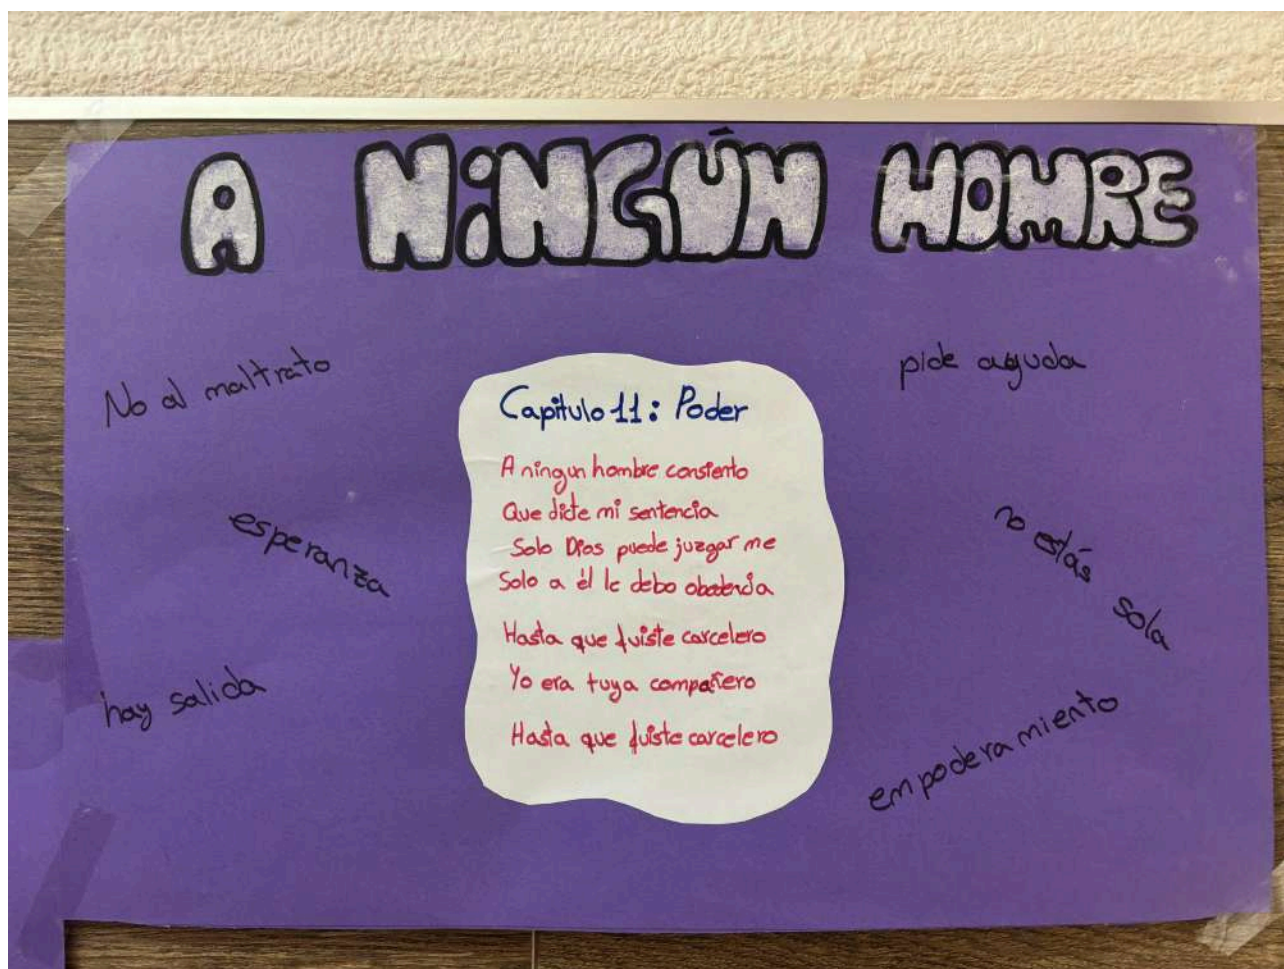 A NiNGÚN HOMRE
No al maltrato
esperanza
hay salida
Capitulo 11: Poder
A ningun hombre consiento
Que dicte mi sentencia
Solo Dios puede juzgar me
Solo a él le debo obedencia
Hasta que fuiste carcelero
Yo era tuya compañero
Hasta que fuiste carcelero
pide ayuda
no estás sola
empoderamiento